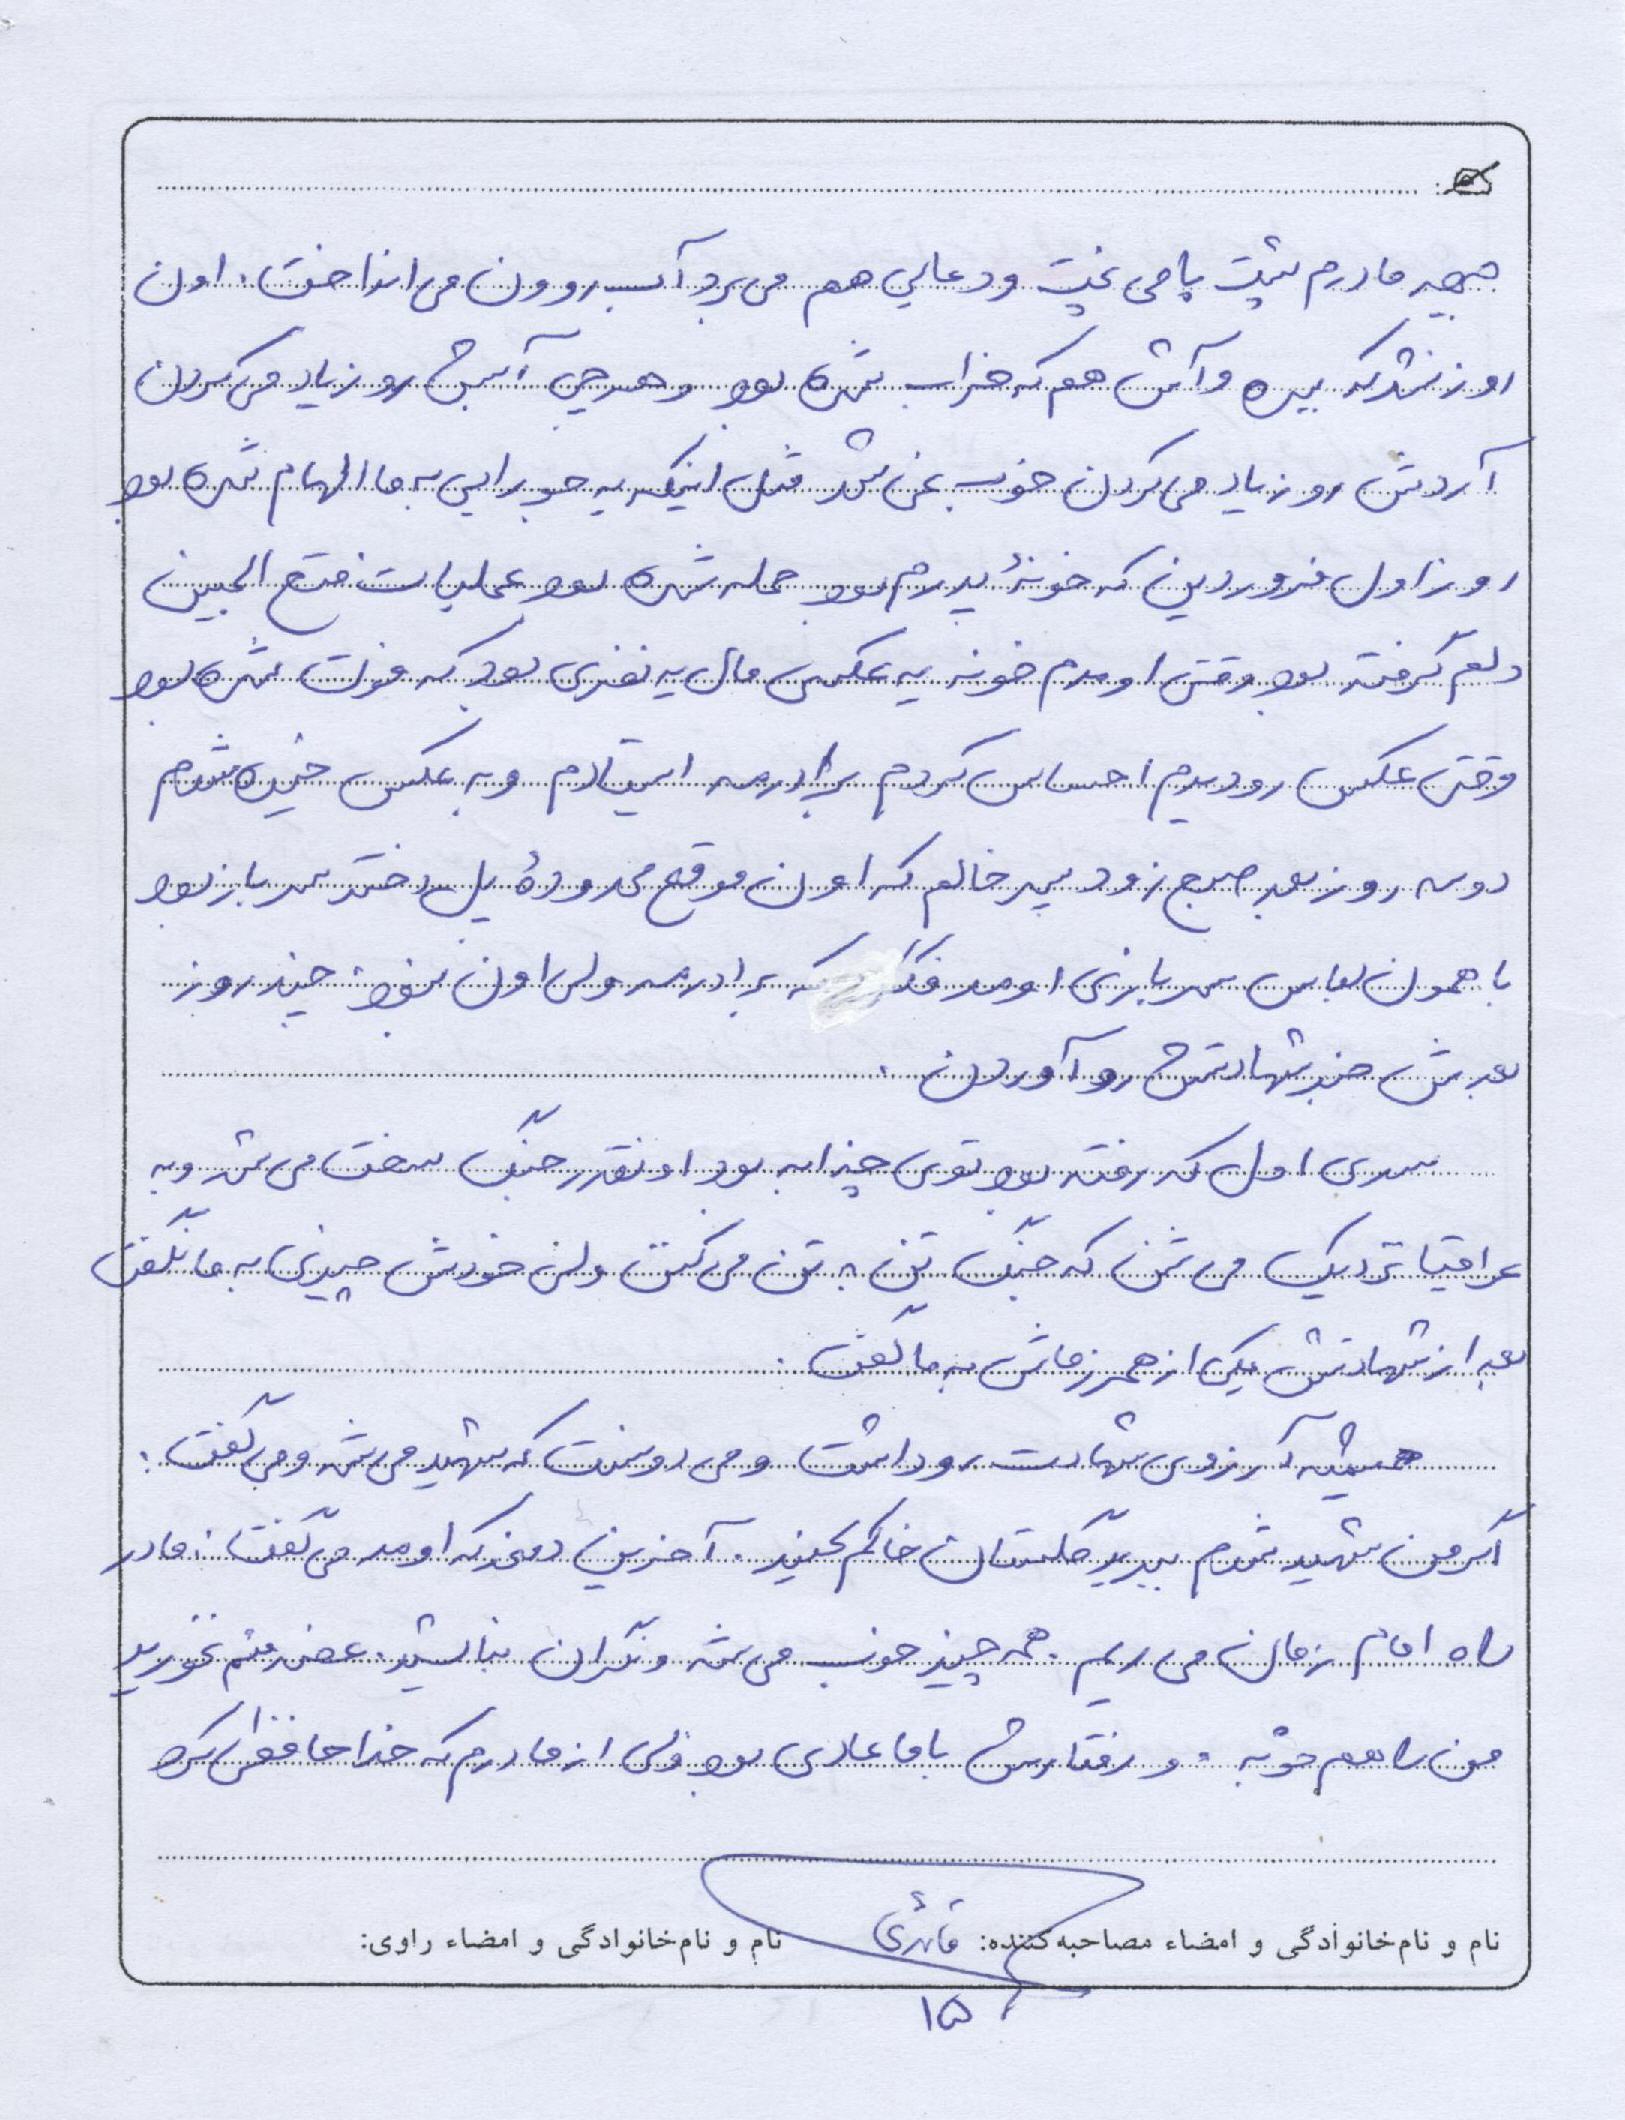 جبهه مادرم پشت پا می پخت و دعایی هم می برد آب روون می انداخت. اون
روز نشد که ببره و آش هم که خراب شده بود و هرچی آبش رو زیاد می کردن
آردش رو زیاد می کردن خوب نمی شد مثل اینکه یه جورایی به ما الهام شده بود
روز اول فروردین که خونۀ پدرم بود حمله شده بود عملیات فتح المبین
دلم گرفته بود وقتی اومدم خونه یه عکس مال یه نفری بود که فوت شده بود
وقتی عکس رو دیدم احساس کردم برادرمه ایستادم و به عکس خیره شدم
دو سه روز بعد صبح زود پسر خالم که اون موقع محدودۀ پل دختر سرباز بود
با همون لباس سربازی اومد فکر که برادرمه ولی اون نبود. چند روز
بعدش خبر شهادتش رو آوردن.
سری اول که رفته بود توی چزابه بود اونقدر جنگ سخت می شد و به
عراقیا نزدیک می شن که جنگ تن به تن می کنن ولی خودش چیزی به ما نگفت
بعد از شهادتش یکی از همرزماش به ما گفت.
همیشه آرزوی شهادت رو داشت و می دونست که شهید می شه و می گفت:
اگر من شهید شدم ببرید گلستان خاکم کنید. آخرین دفعه که اومد می گفت: مادر
راه امام زمان می ریم. همه چیز خوب می شه و نگران نباشید. غصه منم نخورید
من راهم خوبه. و رفتارش با ما عادی بود ولی از مادرم که خداحافظی کرد
نام و نام‌خانوادگی و امضاء مصاحبه‌کننده: قائدی نام و نام‌خانوادگی و امضاء راوی:
۱۵